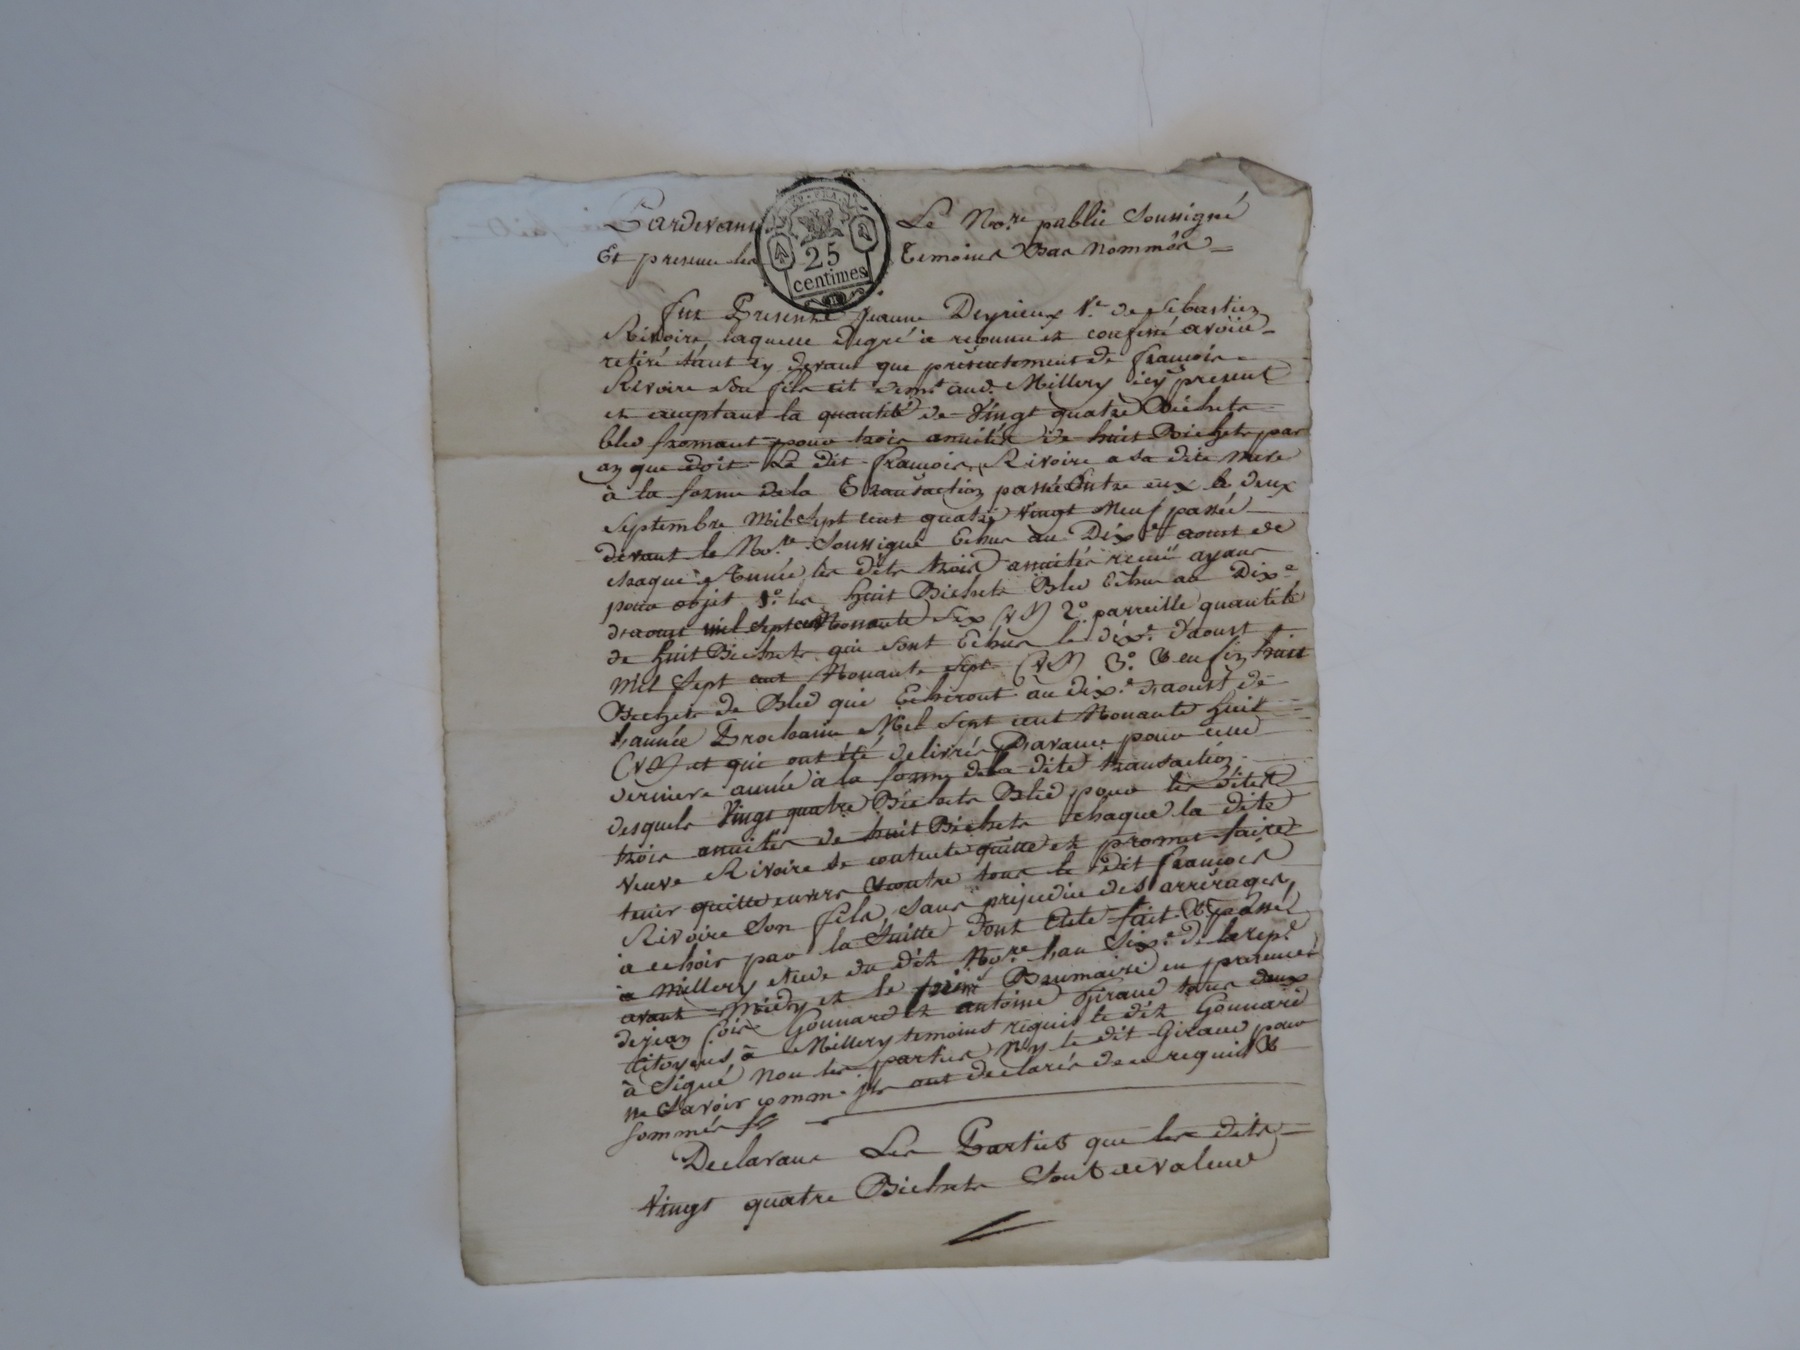 Pardevant Le No.re public Soussigné
Et presence des Temoins Bas nommés
REP. FRA.
25
centimes
Fut Presente jeanne Deyrieux V.e de sebastien
Rivoire, laquelle degré a reconnu et confessé avoir
retiré tant cy devant que présentement de françois
Rivoire son fils cit. dem.t aud. Millery icy present
et acceptant la quantité de Vingt quatre Bichets
bled fromant pour trois anuités de huit Bichets par
an que doit Le dit françois Rivoire a sa dite mere
à la forme dela Transaction passé Entre eux le deux
septembre Mil Sept cent quatre Vingt Neuf passée
devant le No.re Soussigné Echus au Dix.e aoust de
chaque Année, les dits trois anuités reçuë ayant
pour objet 1.o les huit Bichets Bled Echus au Dix.e
daoust mil Sept cent Nonante Six (VS) 2.o parreille quantité
de huit Bichets qui sont Echus le dix.e daoust
Mil Sept cent Nonante Sept (VS) 3.o & enfin huit
Bichets de Bled qui Echeront au dix.e daoust de
Lannée Prochaine Mil Sept cent Nonante huit
(VS) et qui ont été delivrés Davance pour cette
derniere année à la forme dela dite transaction
desquels Vingt quatre Bichets Bled pour les dites
trois anuités de huit Bichets chaque la dite
veuve Rivoire se contente quitte et promet faire
tenir quitte envers & contre tous le dit françois
Rivoire Son fils, Sans prejudice des arrérages,
à echoir par la Suitte Dont Acte fait & passé
à Millery etude du dit No.re Lan Six.e de la rep.e
avant Midy et le Brumaire en presences
de jean fois Gonnard et antoine Giraud tous deux
Citoyens à Millery temoins requis le dit Gonnard
à Signé Non les parties Ny le dit Giraud pour
ne Savoir comme ils ont declarés de ce requis &
sommés
Declarant Les Parties que les dits
Vingt quatre Bichets Sont de valeur